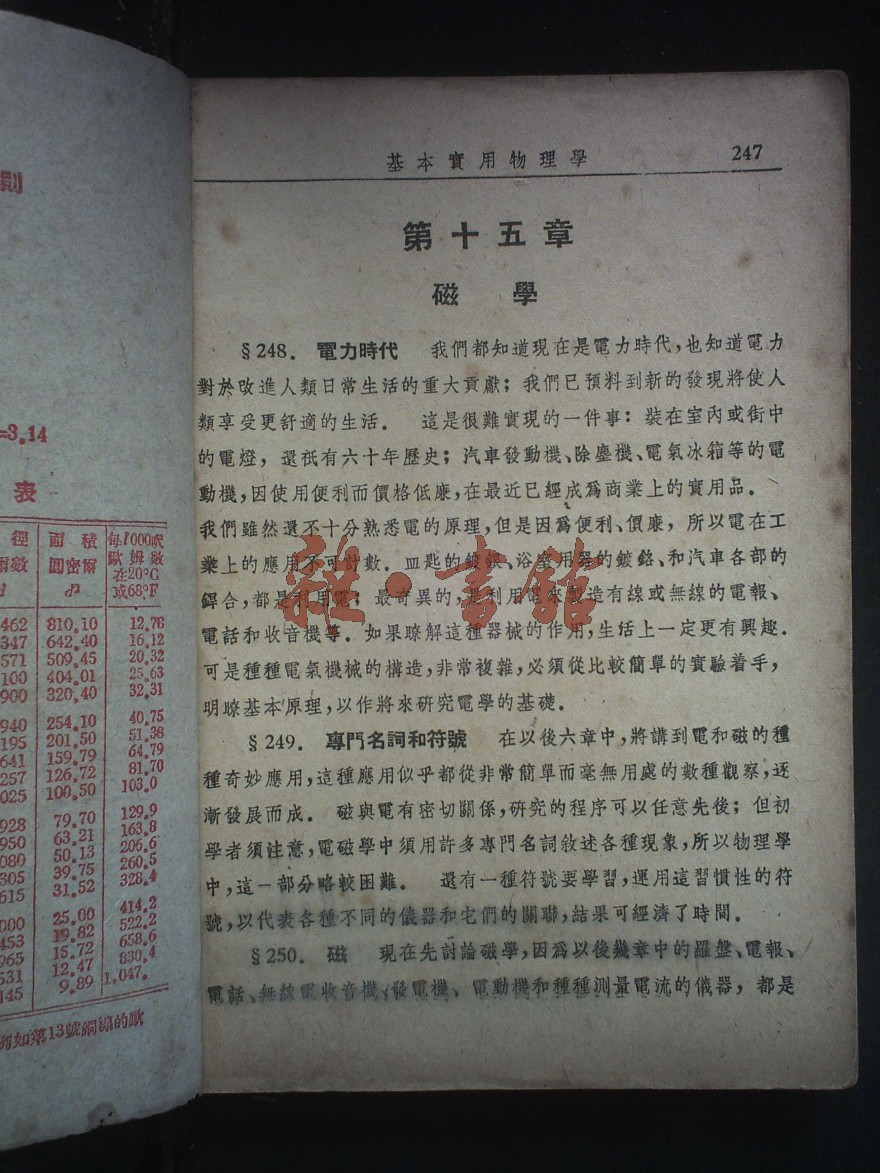 則
=3.14
表
徑 面積 每1000呎
爾數 圓密爾 歐姆數
d d² 在20°C
或68°F
462 810.10 12.76
347 642.40 16.12
571 509.45 20.32
100 404.01 25.63
900 320.40 32.31
940 254.10 40.75
195 201.50 51.38
641 159.79 64.79
257 126.72 81.70
025 100.50 103.0
928 79.70 129.9
950 63.21 163.8
080 50.13 206.6
305 39.75 260.5
615 31.52 328.4
000 25.00 414.2
453 19.82 522.2
965 15.72 658.6
531 12.47 830.4
145 9.89 1,047.
如第13號銅線的歐
基本實用物理學 247
第十五章
磁學
§248. 電力時代 我們都知道現在是電力時代,也知道電力
對於改進人類日常生活的重大貢獻;我們已預料到新的發現將使人
類享受更舒適的生活. 這是很難實現的一件事:裝在室內或街中
的電燈,還祇有六十年歷史;汽車發動機、除塵機、電氣冰箱等的電
動機,因使用便利而價格低廉,在最近已經成爲商業上的實用品.
我們雖然還不十分熟悉電的原理,但是因爲便利、價廉,所以電在工
業上的應用不可計數. 皿匙的鍍銀、浴室用器的鍍鉻、和汽車各部的
銲合,都是利用電;最奇異的,是利用電來製造有線或無線的電報、
電話和收音機等. 如果瞭解這種器械的作用,生活上一定更有興趣.
可是種種電氣機械的構造,非常複雜,必須從比較簡單的實驗着手,
明瞭基本原理,以作將來研究電學的基礎.
§249. 專門名詞和符號 在以後六章中,將講到電和磁的種
種奇妙應用,這種應用似乎都從非常簡單而毫無用處的數種觀察,逐
漸發展而成. 磁與電有密切關係,研究的程序可以任意先後;但初
學者須注意,電磁學中須用許多專門名詞敘述各種現象,所以物理學
中,這一部分略較困難. 還有一種符號要學習,運用這習慣性的符
號,以代表各種不同的儀器和它們的關聯,結果可經濟了時間.
§250. 磁 現在先討論磁學,因爲以後幾章中的羅盤、電報、
電話、無線電收音機、發電機、電動機和種種測量電流的儀器,都是
雜·書館